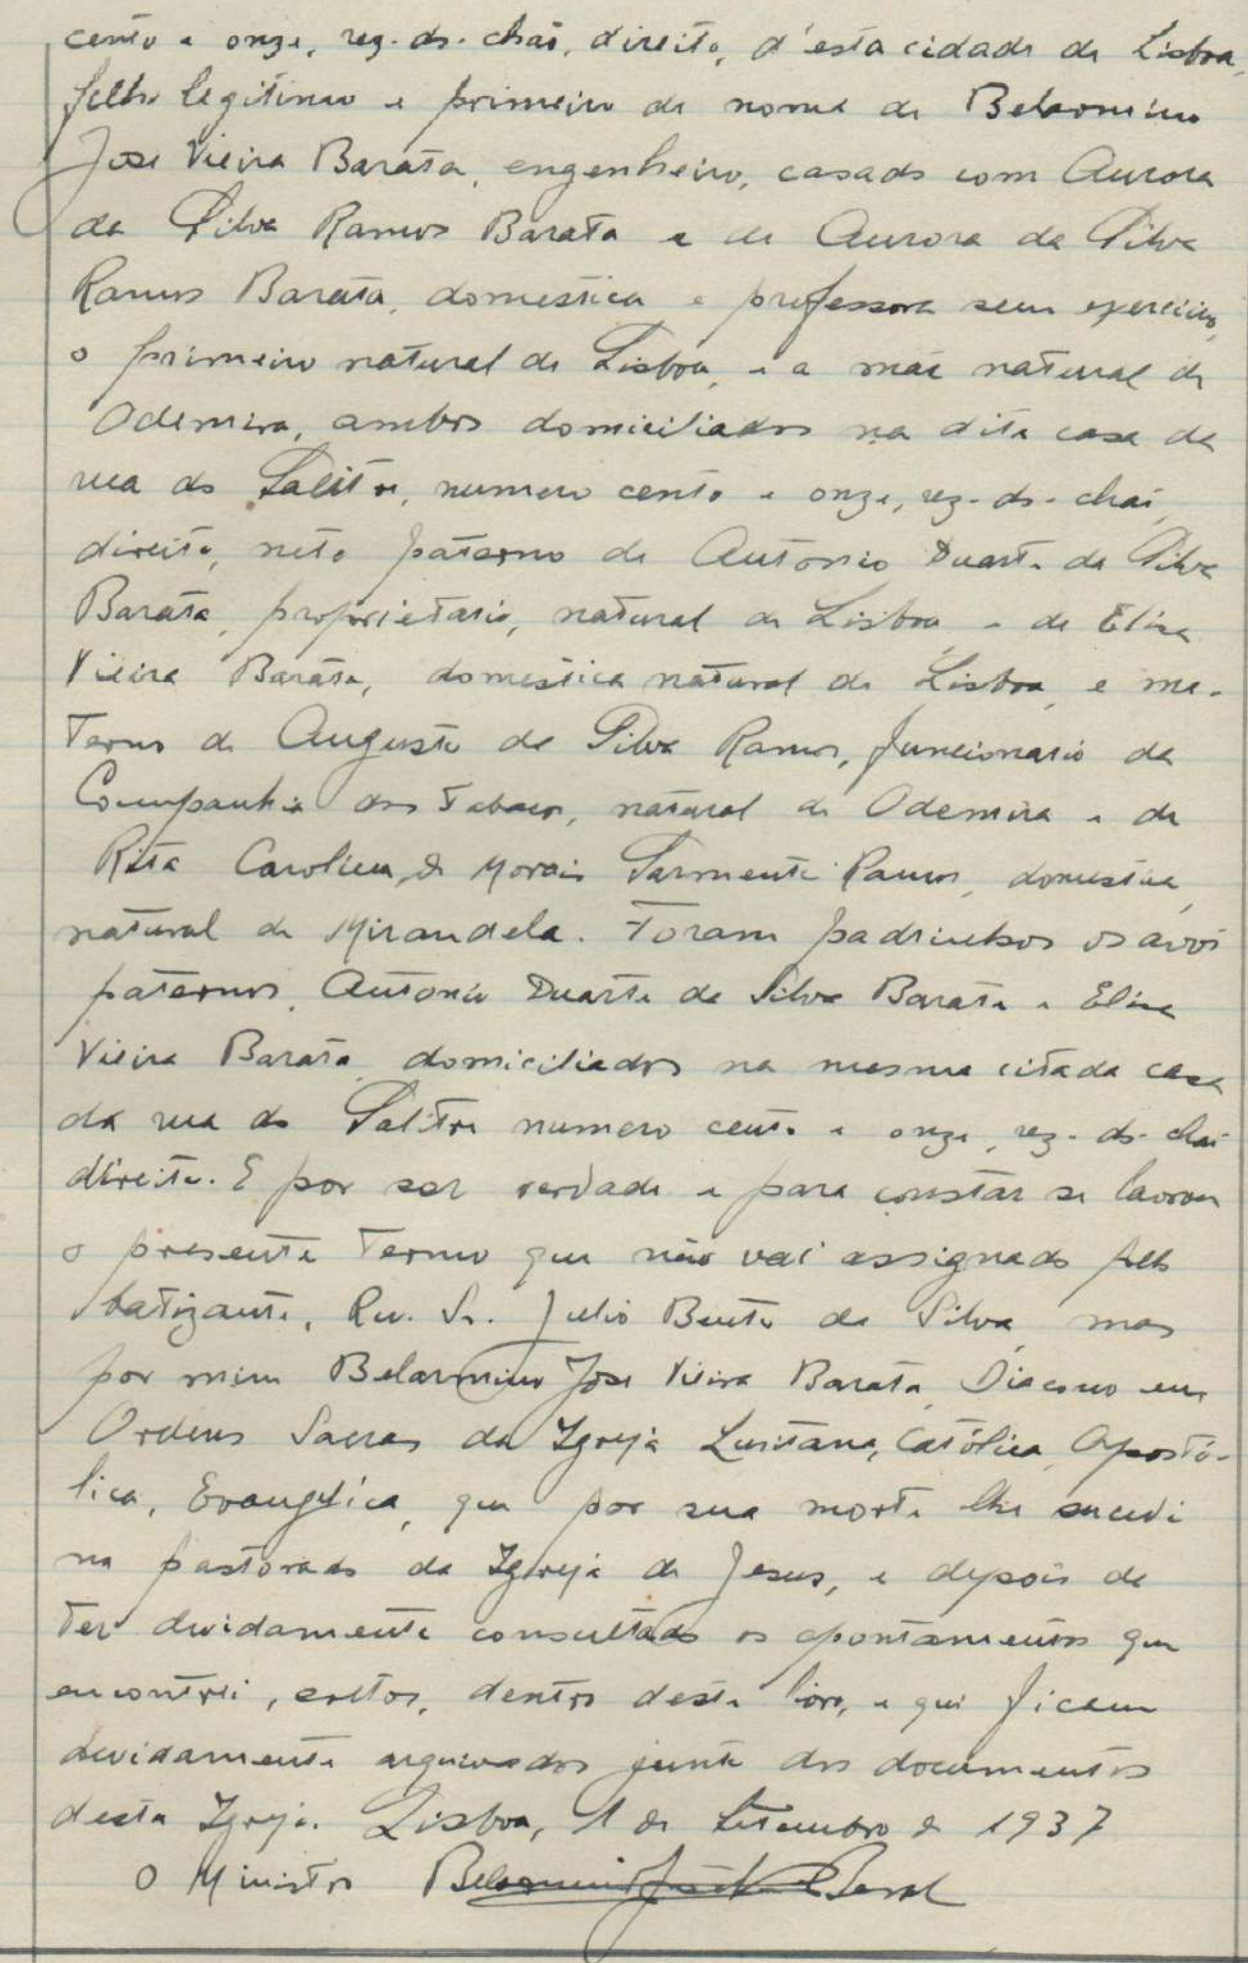 cento e onze, rez-do-chão, direito, d'esta cidade de Lisboa,
filho legitimo e primeiro de nome de Belarmino
José Vieira Barata, engenheiro, casado com Aurora
da Silva Ramos Barata e de Aurora da Silva
Ramos Barata, domestica e professora sem exercicio,
o primeiro natural de Lisboa, e a mãe natural de
Odemira, ambos domiciliados na dita casa da
rua do Salitre, numero cento e onze, rez-do-chão
direito, neto paterno de Antonio Duarte da Silva
Barata, proprietario, natural de Lisboa e de Elisa
Vieira Barata, domestica natural de Lisboa, e ma-
terno de Augusto da Silva Ramos, funcionario da
Companhia dos Tabacos, natural de Odemira e de
Rita Carolina de Morais Sarmento Ramos, domestica,
natural de Mirandela. Foram padrinhos os avós
paternos, Antonio Duarte da Silva Barata e Elisa
Vieira Barata domiciliados na mesma citada casa
da rua do Salitre numero cento e onze, rez-do-chão
direito. E por ser verdade e para constar se lavrou
o presente termo que não vai assignado pelo
batizante, Rev. Sr. Julio Bento da Silva, mas
por mim Belarmino José Vieira Barata, Diacono em
Ordens Sacras da Igreja Lusitana, Católica, Apostó-
lica, Evangelica, que por sua morte lhe sucedi
no pastorado da Igreja de Jesus, e depois de
ter devidamente consultado os apontamentos que
encontrei, soltos, dentro deste livro, e que ficam
devidamente arquivados junto dos documentos
desta Igreja. Lisboa, 1 de Setembro de 1937
O Ministro Belarmino José V. Barata